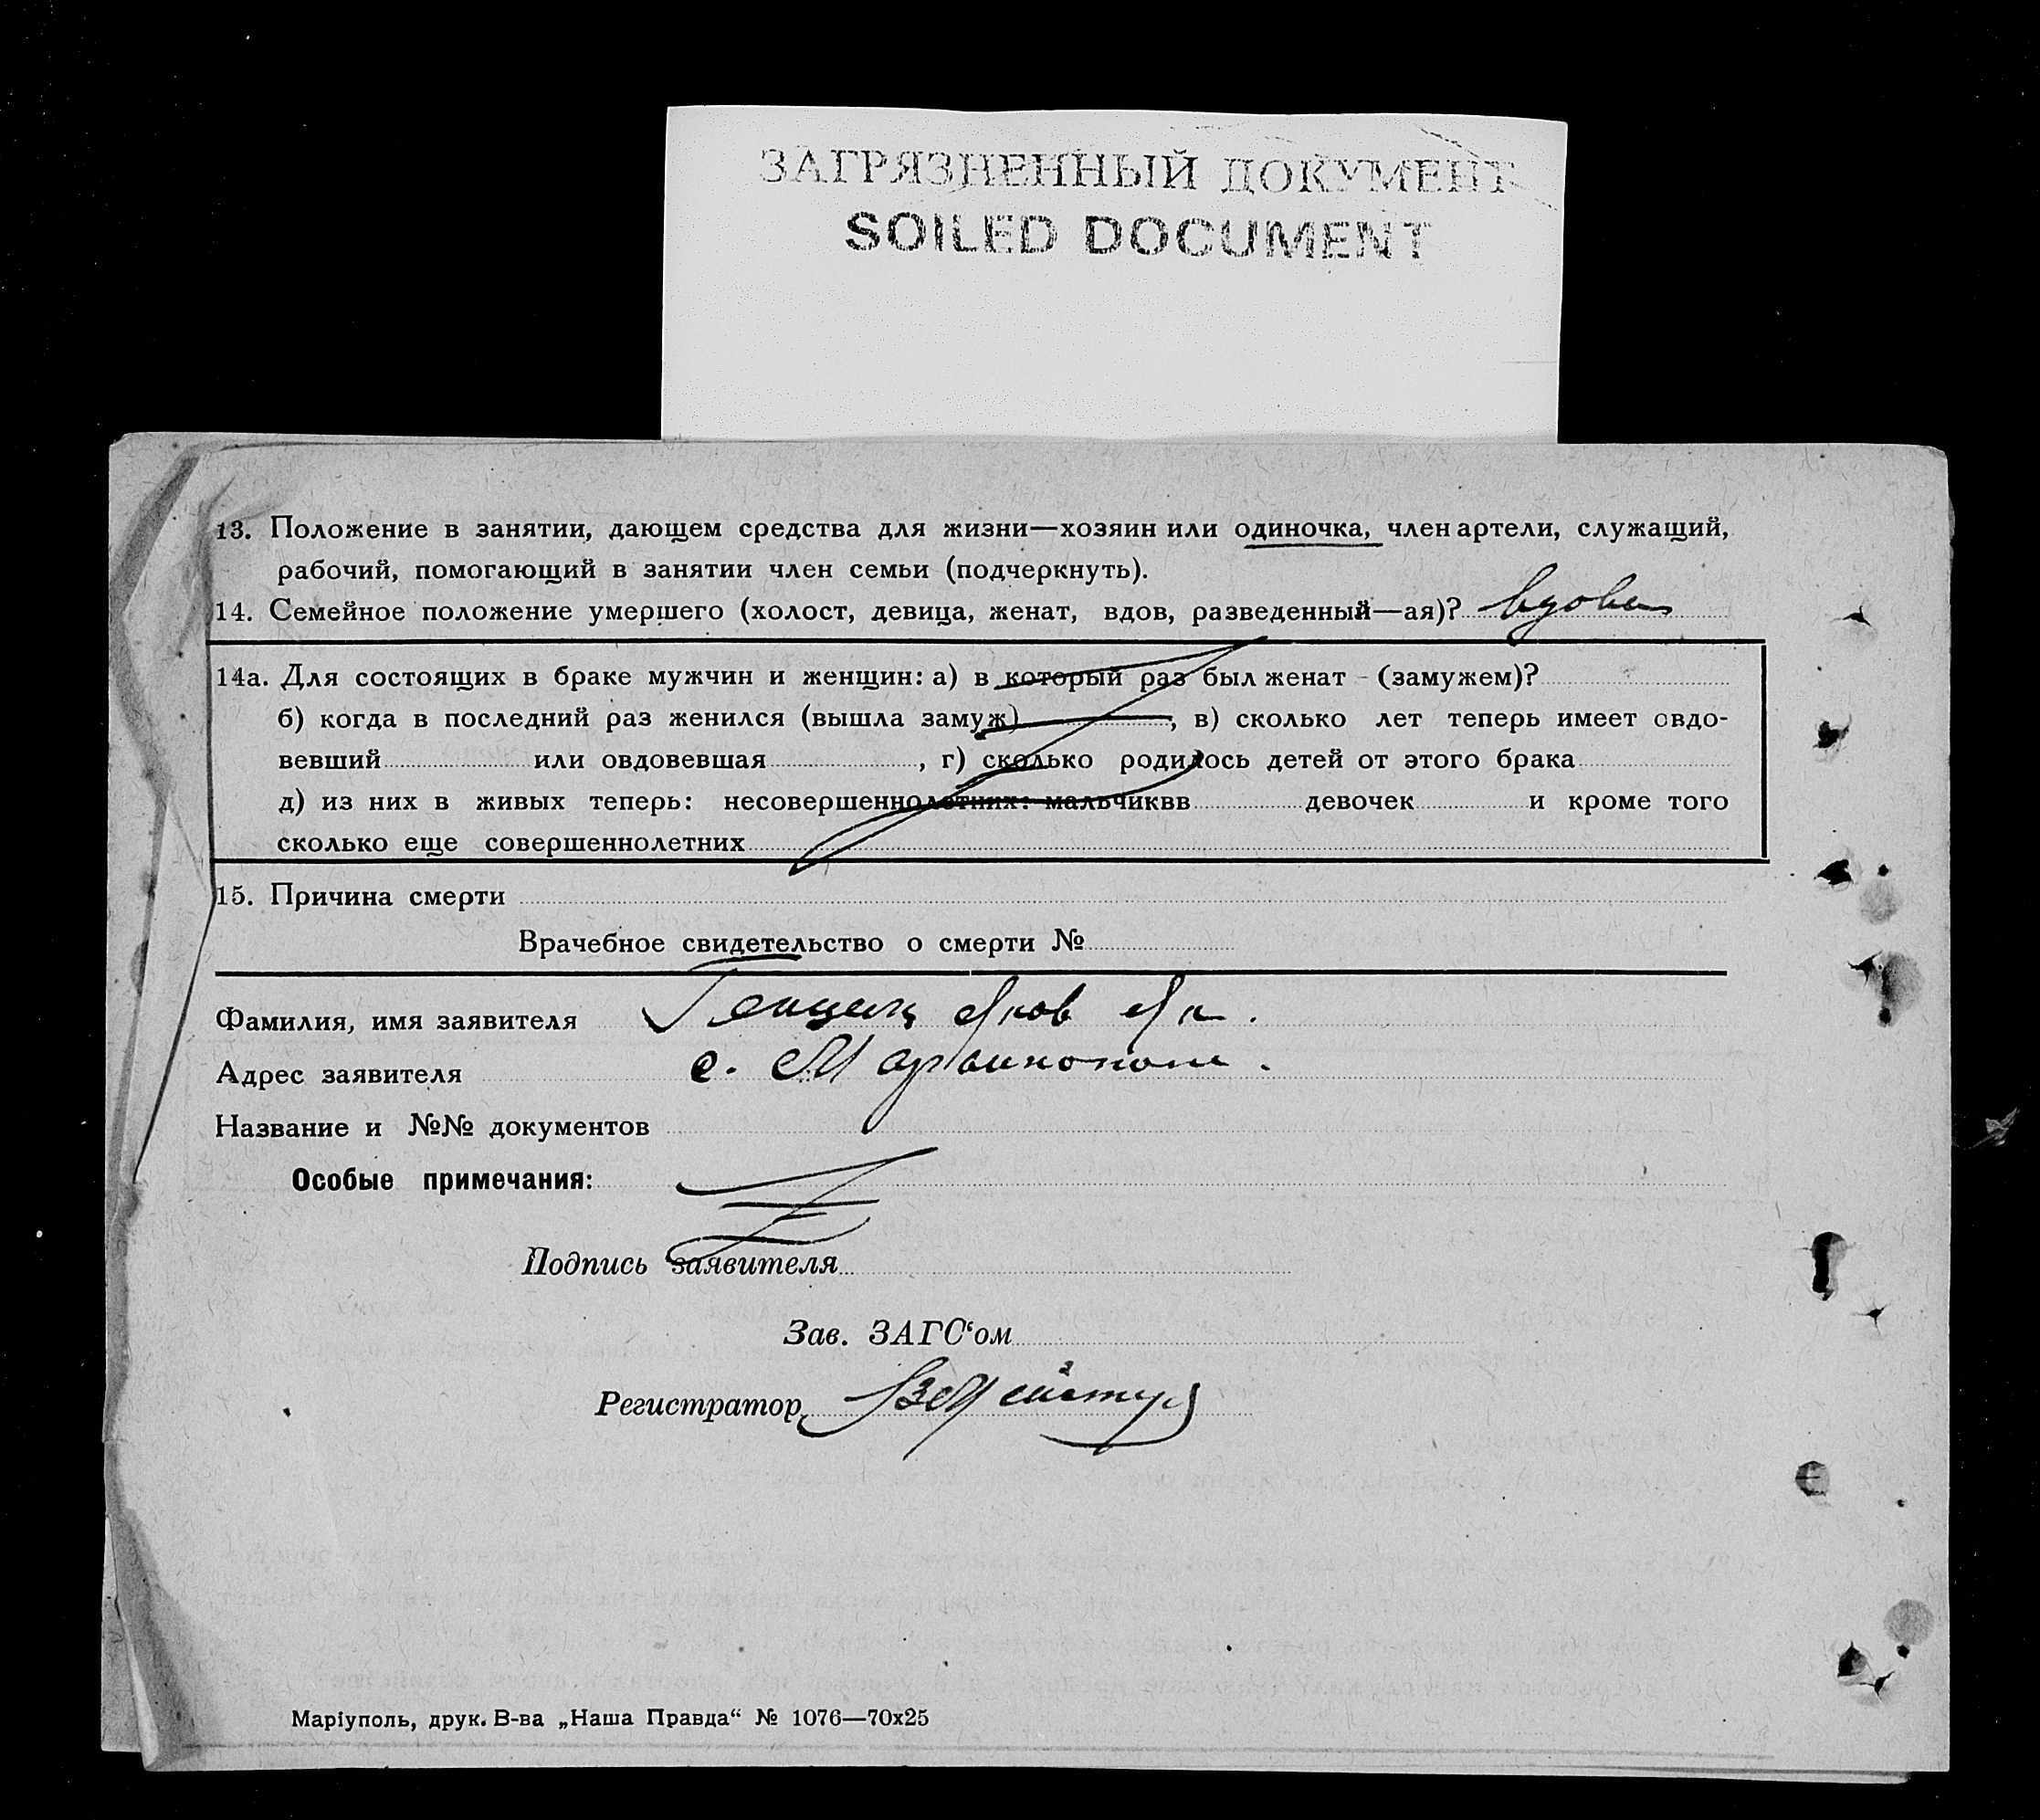 ЗАГРЯЗНЕННЫЙ ДОКУМЕНТ
SOILED DOCUMENT
13. Положение в занятии, дающем средства для жизни—хозяин или одиночка, член артели, служащий,
рабочий, помогающий в занятии член семьи (подчеркнуть).
14. Семейное положение умершего (холост, девица, женат, вдов, разведенный—ая)? вдова
14а. Для состоящих в браке мужчин и женщин: а) в который раз был женат - (замужем)?
б) когда в последний раз женился (вышла замуж) , в) сколько лет теперь имеет овдо-
вевший или овдовевшая , г) сколько родилось детей от этого брака
д) из них в живых теперь: несовершеннолетних: мальчиквв девочек и кроме того
сколько еще совершеннолетних
15. Причина смерти
Врачебное свидетельство о смерти №
Фамилия, имя заявителя Яков Як.
Адрес заявителя с.
Название и №№ документов
Особые примечания:
Подпись заявителя
Зав. ЗАГС‘ом
Регистратор
Маріуполь, друк. В-ва „Наша Правда“ № 1076—70х25